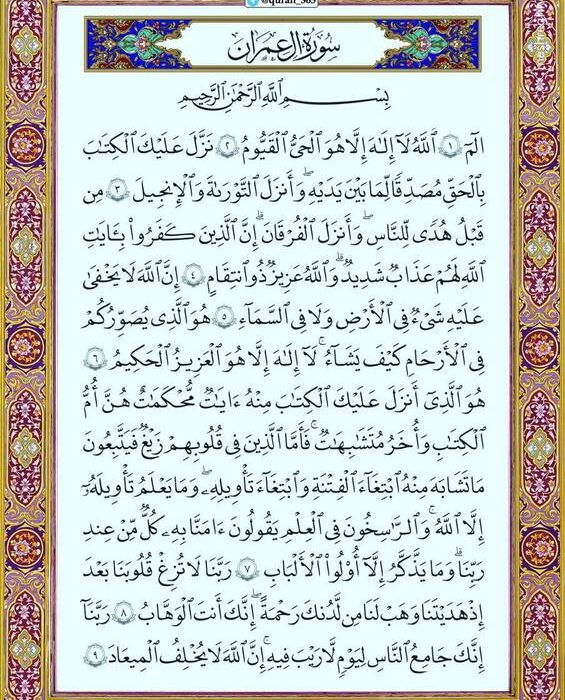 @quran_365
سُورَةُ آلِ عِمْرَان
بِسْمِ اللَّهِ الرَّحْمَٰنِ الرَّحِيمِ
الٓمٓ ١ اللَّهُ لَآ إِلَٰهَ إِلَّا هُوَ الْحَىُّ الْقَيُّومُ ٢ نَزَّلَ عَلَيْكَ الْكِتَٰبَ
بِالْحَقِّ مُصَدِّقًا لِّمَا بَيْنَ يَدَيْهِ وَأَنزَلَ التَّوْرَىٰةَ وَالْإِنجِيلَ ٣ مِن
قَبْلُ هُدًى لِّلنَّاسِ وَأَنزَلَ الْفُرْقَانَ ۗ إِنَّ الَّذِينَ كَفَرُوا۟ بِـَٔايَٰتِ
اللَّهِ لَهُمْ عَذَابٌ شَدِيدٌ ۗ وَاللَّهُ عَزِيزٌ ذُو انتِقَامٍ ٤ إِنَّ اللَّهَ لَا يَخْفَىٰ
عَلَيْهِ شَىْءٌ فِى الْأَرْضِ وَلَا فِى السَّمَآءِ ٥ هُوَ الَّذِى يُصَوِّرُكُمْ
فِى الْأَرْحَامِ كَيْفَ يَشَآءُ ۚ لَآ إِلَٰهَ إِلَّا هُوَ الْعَزِيزُ الْحَكِيمُ ٦
هُوَ الَّذِىٓ أَنزَلَ عَلَيْكَ الْكِتَٰبَ مِنْهُ ءَايَٰتٌ مُّحْكَمَٰتٌ هُنَّ أُمُّ
الْكِتَٰبِ وَأُخَرُ مُتَشَٰبِهَٰتٌ ۖ فَأَمَّا الَّذِينَ فِى قُلُوبِهِمْ زَيْغٌ فَيَتَّبِعُونَ
مَا تَشَٰبَهَ مِنْهُ ابْتِغَآءَ الْفِتْنَةِ وَابْتِغَآءَ تَأْوِيلِهِۦ ۗ وَمَا يَعْلَمُ تَأْوِيلَهُۥٓ
إِلَّا اللَّهُ ۗ وَالرَّٰسِخُونَ فِى الْعِلْمِ يَقُولُونَ ءَامَنَّا بِهِۦ كُلٌّ مِّنْ عِندِ
رَبِّنَا ۗ وَمَا يَذَّكَّرُ إِلَّآ أُو۟لُوا۟ الْأَلْبَٰبِ ٧ رَبَّنَا لَا تُزِغْ قُلُوبَنَا بَعْدَ
إِذْ هَدَيْتَنَا وَهَبْ لَنَا مِن لَّدُنكَ رَحْمَةً ۚ إِنَّكَ أَنتَ الْوَهَّابُ ٨ رَبَّنَآ
إِنَّكَ جَامِعُ النَّاسِ لِيَوْمٍ لَّا رَيْبَ فِيهِ ۚ إِنَّ اللَّهَ لَا يُخْلِفُ الْمِيعَادَ ٩